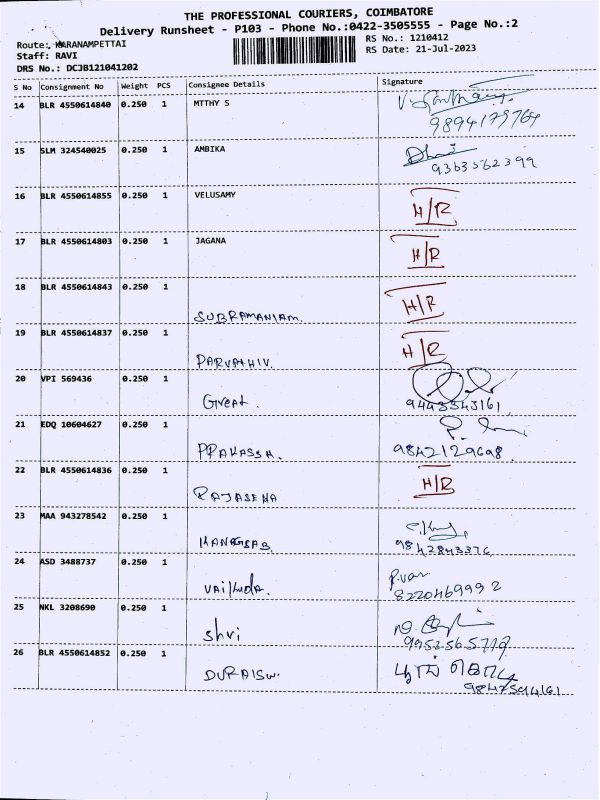 THE PROFESSIONAL COURIERS, COIMBATORE
Delivery Runsheet - P103 - Phone No.:0422-3505555 - Page No.:2
Route: KARANAMPETTAI
RS No.: 1210412
Staff: RAVI
RS Date: 21-Jul-2023
DRS No.: DCJB121041202
S No Consignment No Weight PCS Consignee Details Signature
14 BLR 4550614840 0.250 1 MTTHY S
9894179764
15 SLM 324540025 0.250 1 AMBIKA
9363562399
16 BLR 4550614855 0.250 1 VELUSAMY
H/R
17 BLR 4550614803 0.250 1 JAGANA
H/R
18 BLR 4550614843 0.250 1
SUBRAMANIAM. H/R
19 BLR 4550614837 0.250 1
PARVATHI V. H/R
20 VPI 569436 0.250 1
Great. 9443343161
21 EDQ 10604627 0.250 1
PPAKASSH. 9842129698
22 BLR 4550614836 0.250 1
RAJASENA H/R
23 MAA 943278542 0.250 1
KANAGSAB 9842843376
24 ASD 3488737 0.250 1
8220469992
25 NKL 3208690 0.250 1
Shri 9952565779
26 BLR 4550614852 0.250 1
DURAISW. 9847594161